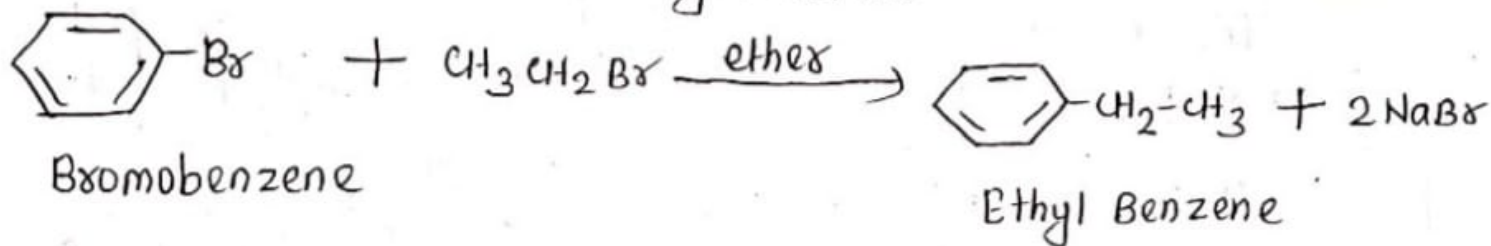 Br + CH3 CH2 Br ether CH2-CH3 + 2 NaBr
Bromobenzene
Ethyl Benzene